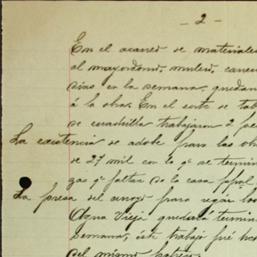 - 2 -
En el acarreo de materiales
al mayordomo, mulero,
sias en la semana, quedan
á la obra. En el corte de ta
de cuadrilla trabajaron 2
La existencia de adobe para las ob
de 27 mil con lo qe se termin
gas qe faltan de la casa
La presa del arroyo para regar los
Agua Vieja quedará termin
semana, éste trabajo fué hec
del mismo